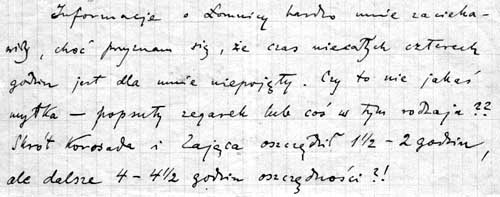 Informacje o Łomnicy bardzo mnie zacieka-
wiły, choć przyznam się, że czas niecałych czterech
godzin jest dla mnie niepojęty. Czy to nie jakaś
myłka – popsuty zegarek lub coś w tym rodzaju??
Skrót Korosada i Zająca oszczędził 1½ – 2 godzin,
ale dalsze 4 – 4½ godzin oszczędności?!